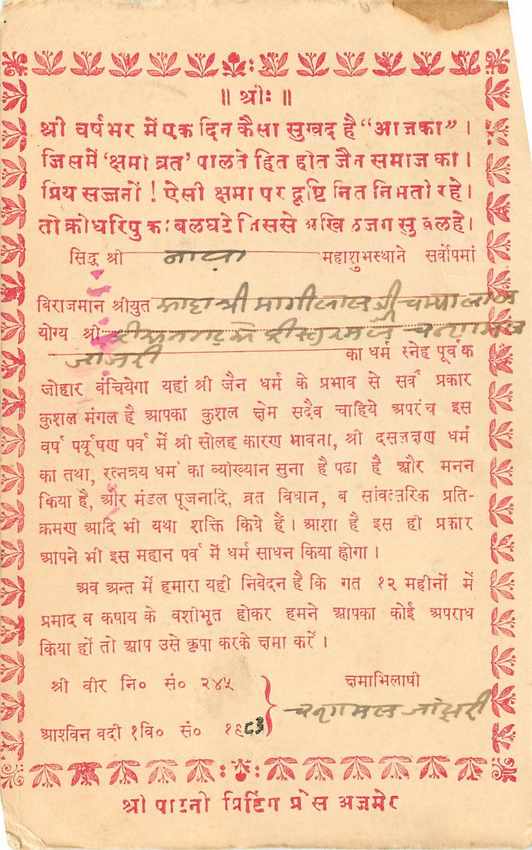 ॥ श्रीः ॥
श्री वर्षभर में एक दिन कैसा सुखद है “आजका” ।
जिसमें ‘क्षमा व्रत’ पालते हित होत जैन समाज का ।
प्रिय सज्जनों ! ऐसी क्षमा पर दृष्टि नित निभतो रहे ।
तो क्रोधरिपु का बलघटे जिससे
सिद्ध श्री नावा महाशुभस्थाने सर्वोपमां
विराजमान श्रीयुत
योग्य श्री
का धर्म स्नेह पूर्वक
जोहार बंचियेगा यहां श्री जैन धर्म के प्रभाव से सर्व प्रकार
कुशल मंगल है आपका कुशल क्षेम सदैव चाहिये अपरंच इस
वर्ष पर्यूषण पर्व में श्री सोलह कारण भावना, श्री दसलक्षण धर्म
का तथा, रत्नत्रय धर्म का व्योख्यान सुना है पढा है और मनन
किया है, और मंडल पूजनादि, व्रत विधान, व सांवत्सरिक प्रति-
क्रमण आदि भी यथा शक्ति किये हैं । आशा है इस ही प्रकार
आपने भी इस महान पर्व में धर्म साधन किया होगा ।
अब अन्त में हमारा यही निवेदन है कि गत १२ महीनों में
प्रमाद व कषाय के वशीभूत होकर हमने आपका कोई अपराध
किया हों तो आप उसे कृपा करके क्षमा करें ।
श्री वीर नि० सं० २४५ क्षमाभिलाषी
आश्विन वदी १ वि० सं० १९८३
श्री पाटनी प्रिंटिंग प्रेस अजमेर